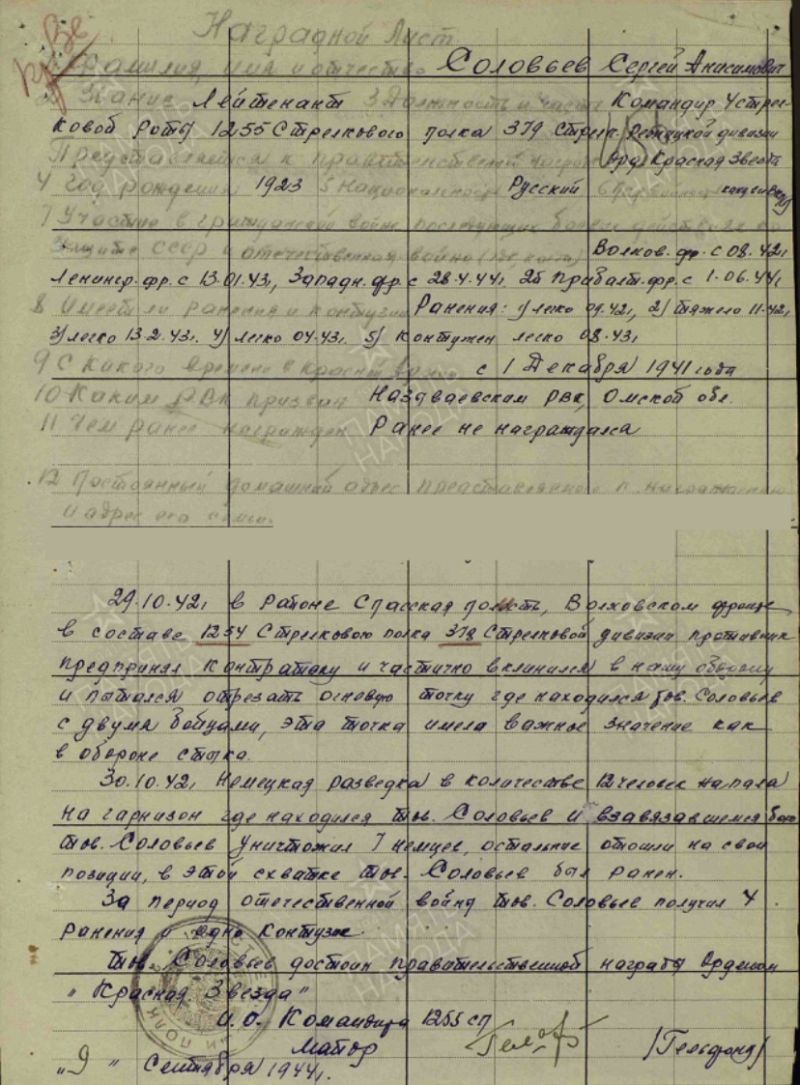 Наградной Лист
Фамилия, имя и отчество Соловьев Сергей Анисимович
2 Звание Лейтенант 3 Должность и часть Командир 4 стрел-
ковой роты 1255 Стрелкового полка 379 Стрелк. Режицкой дивизии
Представляется к правительственной награде Орд. Красная Звезда
4 Год рождения 1923 5 Национальность Русский 6 Партийность
7 Участие в гражданской войне последующих боевых действиях по
защите СССР и отечественной войне Волхов. фр. с 08.42г
Ленингр. фр. с 13.01.43г, Западн. фр. с 28.4.44г, 2й Прибалт. фр. с 1.06.44г
8 Имеет ли ранения и контузии Ранения: 1/ легко 09.42г, 2/ тяжело 11.42г
3/ легко 13.2.43г. 4/ легко 04.43г. 5/ Контужен легко 08.43г
9 С какого времени в красной армии с 1 Декабря 1941 года
10 Каким РВК призван Называевским РВК, Омской обл.
11 Чем ранее награжден Ранее не награждался
12 Постоянный домашний адрес представляемого к награждению
и адрес его семьи.
29.10.42г в районе Спасская полисть, Волховском фронте
в составе 1254 Стрелкового полка 378 Стрелковой дивизии противник
предпринял контратаку и частично вклинился в нашу оборону
и пытался отрезать основую точку где находился тов. Соловьев
с двумя бойцами, эта точка имела важное значение как
в обороне стыка.
30.10.42г Немецкая разведка в количестве 12 человек напала
на гарнизон где находился тов. Соловьев и взавязавшемся бою
тов. Соловьев уничтожил 7 немцев, остальные отошли на свои
позиции, в этой схватке тов. Соловьев был ранен.
За период отечественной войны тов. Соловьев получил 4
ранения и одно контузие.
Тов. Соловьев достоин правительственной награды Орденом
"Красная Звезда"
И.О. Командира 1255 сп
Майор /Гельфонд/
"9" Сентября 1944г.